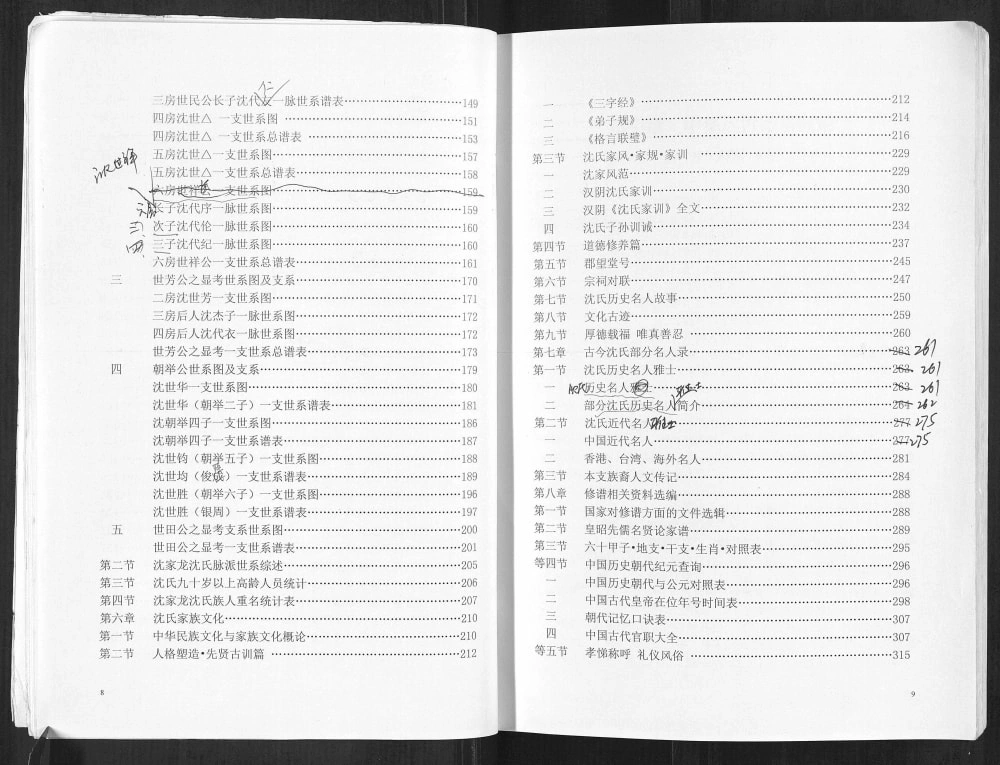 三房世民公长子沈代友一脉世系谱表……149
仁
四房沈世△ 一支世系图……151
四房沈世△ 一支世系总谱表……153
五房沈世△一支世系图……157
五房沈世△一支世系总谱表……158
六房世祥公一支世系图……159
长子沈代序一脉世系图……159
次子沈代伦一脉世系图……160
三子沈代纪一脉世系图……160
六房世祥公一支世系总谱表……161
三 世芳公之显考世系图及支系……170
二房沈世芳一支世系图……171
三房后人沈杰子一脉世系图……172
四房后人沈代衣一脉世系图……172
世芳公之显考一支世系总谱表……173
四 朝举公世系图及支系……179
沈世华一支世系图……180
沈世华（朝举二子）一支世系谱表……181
沈朝举四子一支世系图……186
沈朝举四子一支世系谱表……187
沈世钧（朝举五子）一支世系图……188
沈世均（俊成）一支世系谱表……189
沈世胜（朝举六子）一支世系图……196
沈世胜（银周）一支世系谱表……197
五 世田公之显考支系世系图……200
世田公之显考一支世系谱表……201
第二节 沈家龙沈氏脉派世系综述……205
第三节 沈氏九十岁以上高龄人员统计……206
第四节 沈家龙沈氏族人重名统计表……207
第六章 沈氏家族文化……210
第一节 中华民族文化与家族文化概论……210
第二节 人格塑造•先贤古训篇……212
8
沈世
三
四
一 《三字经》……212
二 《弟子规》……214
三 《格言联璧》……216
第三节 沈氏家风•家规•家训……229
一 沈家风范……229
二 汉阴沈氏家训……230
三 汉阴《沈氏家训》全文……232
四 沈氏子孙训诫……234
第四节 道德修养篇……237
第五节 郡望堂号……245
第六节 宗祠对联……247
第七节 沈氏历史名人故事……250
第八节 文化古迹……259
第九节 厚德载福 唯真善忍……260
第七章 古今沈氏部分名人录……263 261
第一节 沈氏历史名人雅士……263 261
一 历史名人雅士……263 261
二 部分沈氏历史名人简介……264 262
第二节 沈氏近代名人……277 275
一 中国近代名人……277 275
二 香港、台湾、海外名人……281
第三节 本支族裔人文传记……284
第八章 修谱相关资料选编……288
第一节 国家对修谱方面的文件选辑……288
第二节 皇昭先儒名贤论家谱……289
第三节 六十甲子•地支•干支•生肖•对照表……295
等四节 中国历史朝代纪元查询……296
一 中国历史朝代与公元对照表……296
二 中国古代皇帝在位年号时间表……298
三 朝代记忆口诀表……307
四 中国古代官职大全……307
等五节 孝悌称呼 礼仪风俗……315
9